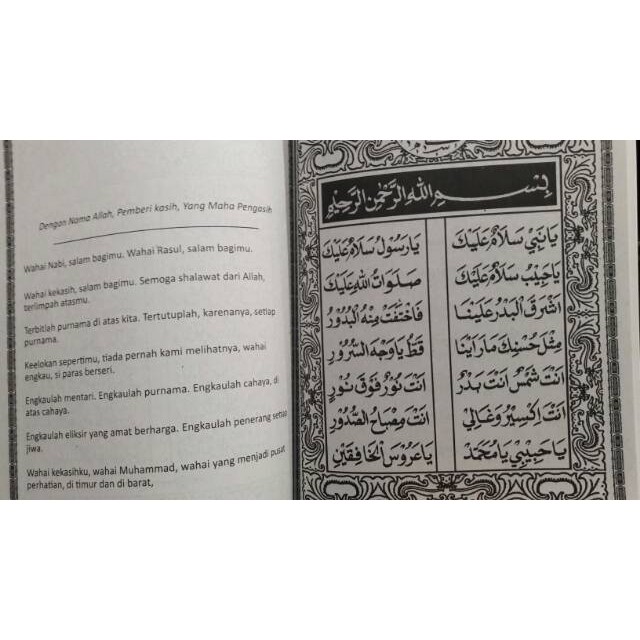 Dengan Nama Allah, Pemberi kasih, Yang Maha Pengasih
Wahai Nabi, salam bagimu. Wahai Rasul, salam bagimu.
Wahai kekasih, salam bagimu. Semoga shalawat dari Allah,
terlimpah atasmu.
Terbitlah purnama di atas kita. Tertutuplah, karenanya, setiap
purnama.
Keelokan sepertimu, tiada pernah kami melihatnya, wahai
engkau, si paras berseri.
Engkaulah mentari. Engkaulah purnama. Engkaulah cahaya, di
atas cahaya.
Engkaulah eliksir yang amat berharga. Engkaulah penerang setiap
jiwa.
Wahai kekasihku, wahai Muhammad, wahai yang menjadi pusat
perhatian, di timur dan di barat,
بِسْــمِ اللهِ الرَّحْمٰنِ الرَّحِيْمِ
يَا نَبِيْ سَلَامٌ عَلَيْكَ يَا رَسُوْلْ سَلَامٌ عَلَيْكَ
يَا حَبِيْبْ سَلَامٌ عَلَيْكَ صَلَوَاتُ اللهِ عَلَيْكَ
اَشْرَقَ الْبَدْرُ عَلَيْنَا فَاخْتَفَتْ مِنْهُ الْبُدُوْرُ
مِثْلَ حُسْنِكْ مَا رَاَيْنَا قَطُّ يَا وَجْهَ السُّرُوْرِ
اَنْتَ شَمْسٌ اَنْتَ بَدْرٌ اَنْتَ نُوْرٌ فَوْقَ نُوْرٍ
اَنْتَ اِكْسِيْرٌ وَغَالِيْ اَنْتَ مِصْبَاحُ الصُّدُوْرِ
يَا حَبِيْبِيْ يَا مُحَمَّدْ يَا عَرُوْسَ الْخَافِقَيْنِ